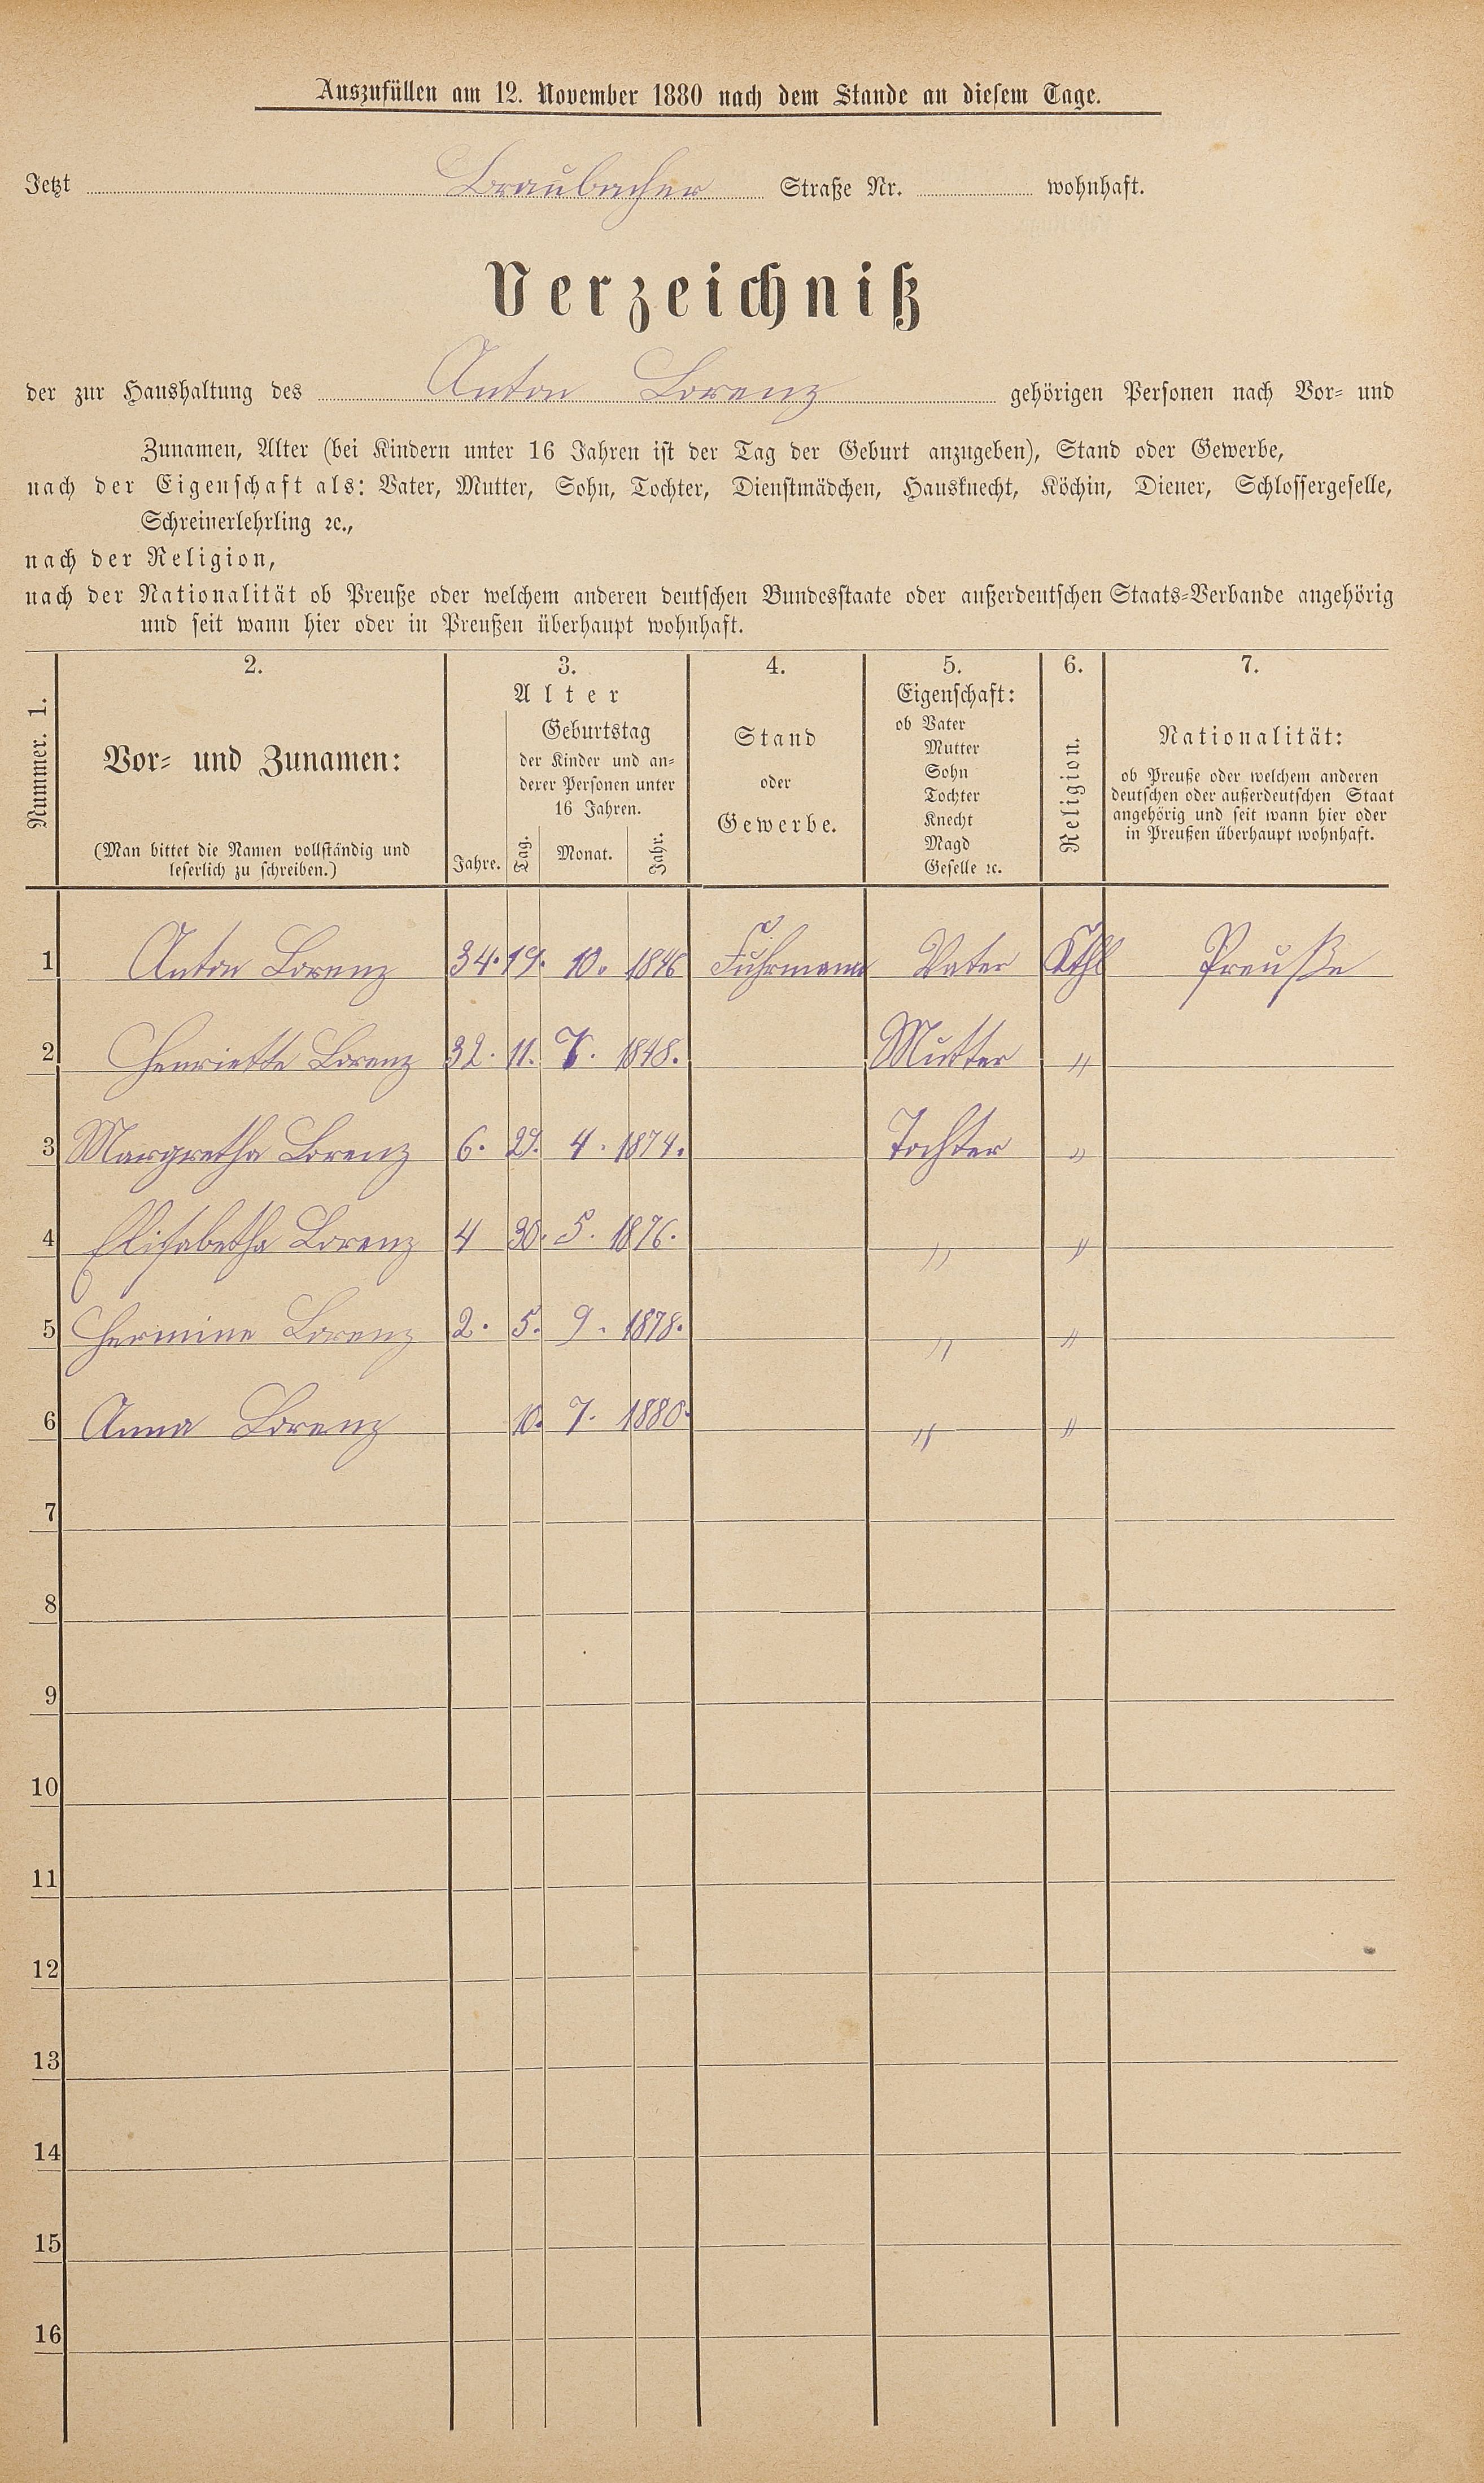 Auszufüllen am 12. November 1880 nach dem Stande an diesem Tage.
Jetzt Braubacher Straße Nr. wohnhaft.
Verzeichniß
der zur Haushaltung des Anton Lorenz gehörigen Personen nach Vor- und
Zunamen, Alter (bei Kindern unter 16 Jahren ist der Tag der Geburt anzugeben), Stand oder Gewerbe,
nach der Eigenschaft als: Vater, Mutter, Sohn, Tochter, Dienstmädchen, Hausknecht, Köchin, Diener, Schlossergeselle,
Schreinerlehrling ꝛc.,
nach der Religion,
nach der Nationalität ob Preuße oder welchem anderen deutschen Bundesstaate oder außerdeutschen Staats-Verbande angehörig
und seit wann hier oder in Preußen überhaupt wohnhaft.
Nummer. 1.
2.
Vor- und Zunamen:
(Man bittet die Namen vollständig und
leserlich zu schreiben.)
3.
Alter
Jahre.
Geburtstag
der Kinder und an-
derer Personen unter
16 Jahren.
Tag. Monat. Jahr.
4.
Stand
oder
Gewerbe.
5.
Eigenschaft:
ob Vater
Mutter
Sohn
Tochter
Knecht
Magd
Geselle ꝛc.
6.
Religion.
7.
Nationalität:
ob Preuße oder welchem anderen
deutschen oder außerdeutschen Staat
angehörig und seit wann hier oder
in Preußen überhaupt wohnhaft.
1 Anton Lorenz 34. 19. 10. 1846 Fuhrmann Vater Kthl Preuße
2 Henriette Lorenz 32. 11. 1848. Mutter "
3 Margretha Lorenz 6. 29. 4. 1874. Tochter "
4 Elisabetha Lorenz 4 30. 5. 1876. " "
5 Hermine Lorenz 2. 5. 9. 1878. " "
6 Anna Lorenz 10. 7. 1880. " "
7
8
9
10
11
12
13
14
15
16